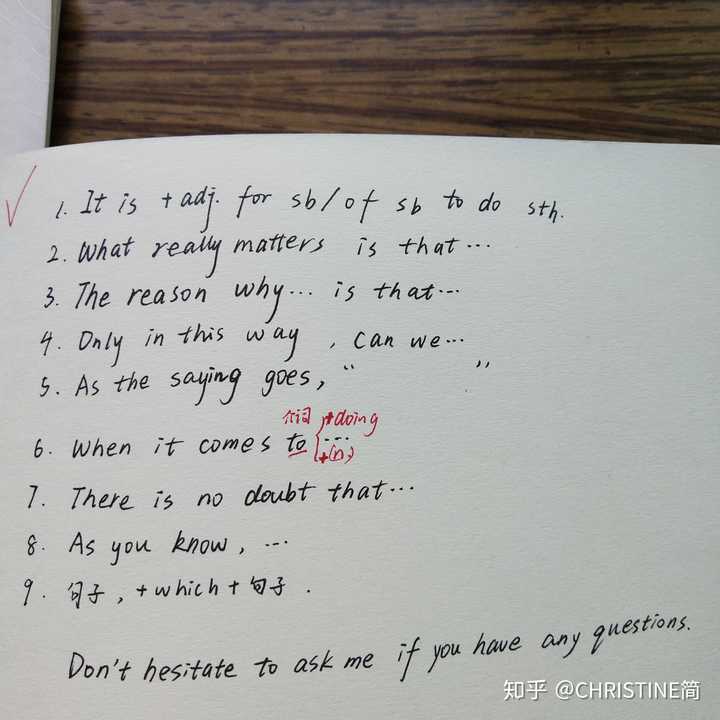 1. It is + adj. for sb/of sb to do sth.
2. What really matters is that...
3. The reason why... is that...
4. Only in this way, can we...
5. As the saying goes, “ ”
介词 +doing
6. When it comes to ...
+(n.)
7. There is no doubt that...
8. As you know, ...
9. 句子, + which + 句子.
Don't hesitate to ask me if you have any questions.
知乎 @CHRISTINE简